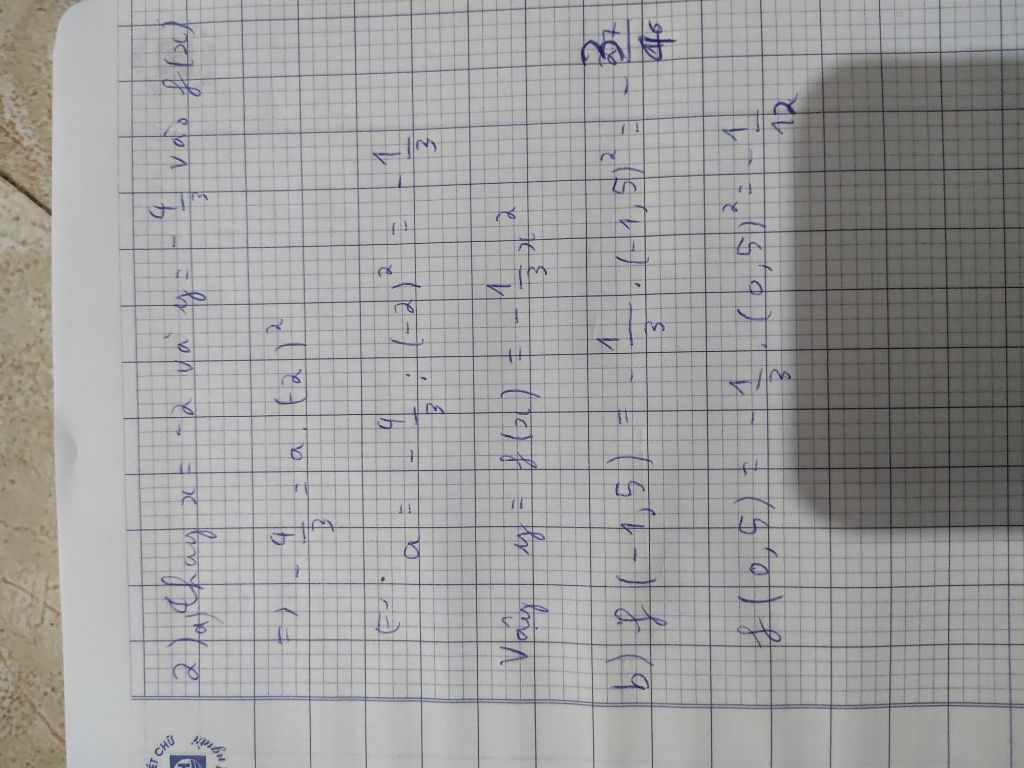 2) a) Thay x = -2 và y = -4/3 vào f(x)
=) -4/3 = a. (-2)²
(=) a = -4/3 : (-2)² = -1/3
Vậy y = f(x) = -1/3 x²
b) f(-1,5) = -1/3 . (-1,5)² = -3/4
f(0,5) = -1/3 . (0,5)² = -1/12
ẾT CHỮ